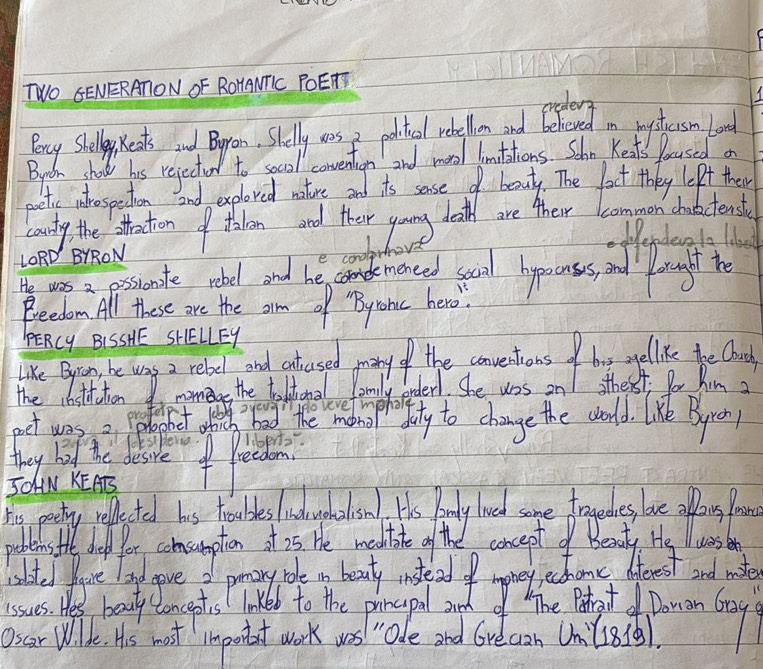 TWO GENERATION OF ROMANTIC POETT
credeva
Percy Shelley, Keats and Byron. Shelly was a political rebellion and believed in mysticism. Lord
Byron show his rejection to social convention and moral limitations. John Keats focused on
poetic introspection and explored nature and its sense of beauty. The fact they left their
country, the attraction of italian and their young death are their common characteristic
LORD BYRON
e condannava e difendeva la libert
He was a passionate rebel and he commemeneed social hypocrisis, and forught the
Freedom. All these are the aim of "Byronic hero".
PERCY BISSHE SHELLEY
Like Byron, he was a rebel and criticised many of the conventions of his age (like the Church,
the institution of marriage, the traditional family order). She was an atheist; for him a
profeta che aveva il dovere morale
poet was a prophet which had the moral duty to change the world. Like Byron,
aveva il desiderio libertà
they had the desire of freedom.
JOHN KEATS
His poetry reflected his troubles (individualism). His family lived some tragedies, love affairs, financia
problems. He died for consumption at 25. He meditate on the concept of Beauty. He was an
isolated figure and gave a primary role in beauty instead of money, economic interest and mater
issues. He's beauty concept is linked to the principal aim of "The Patrait of Dorian Gray"
Oscar Wilde. His most important work was "Ode and Grecian Urn" (1819).